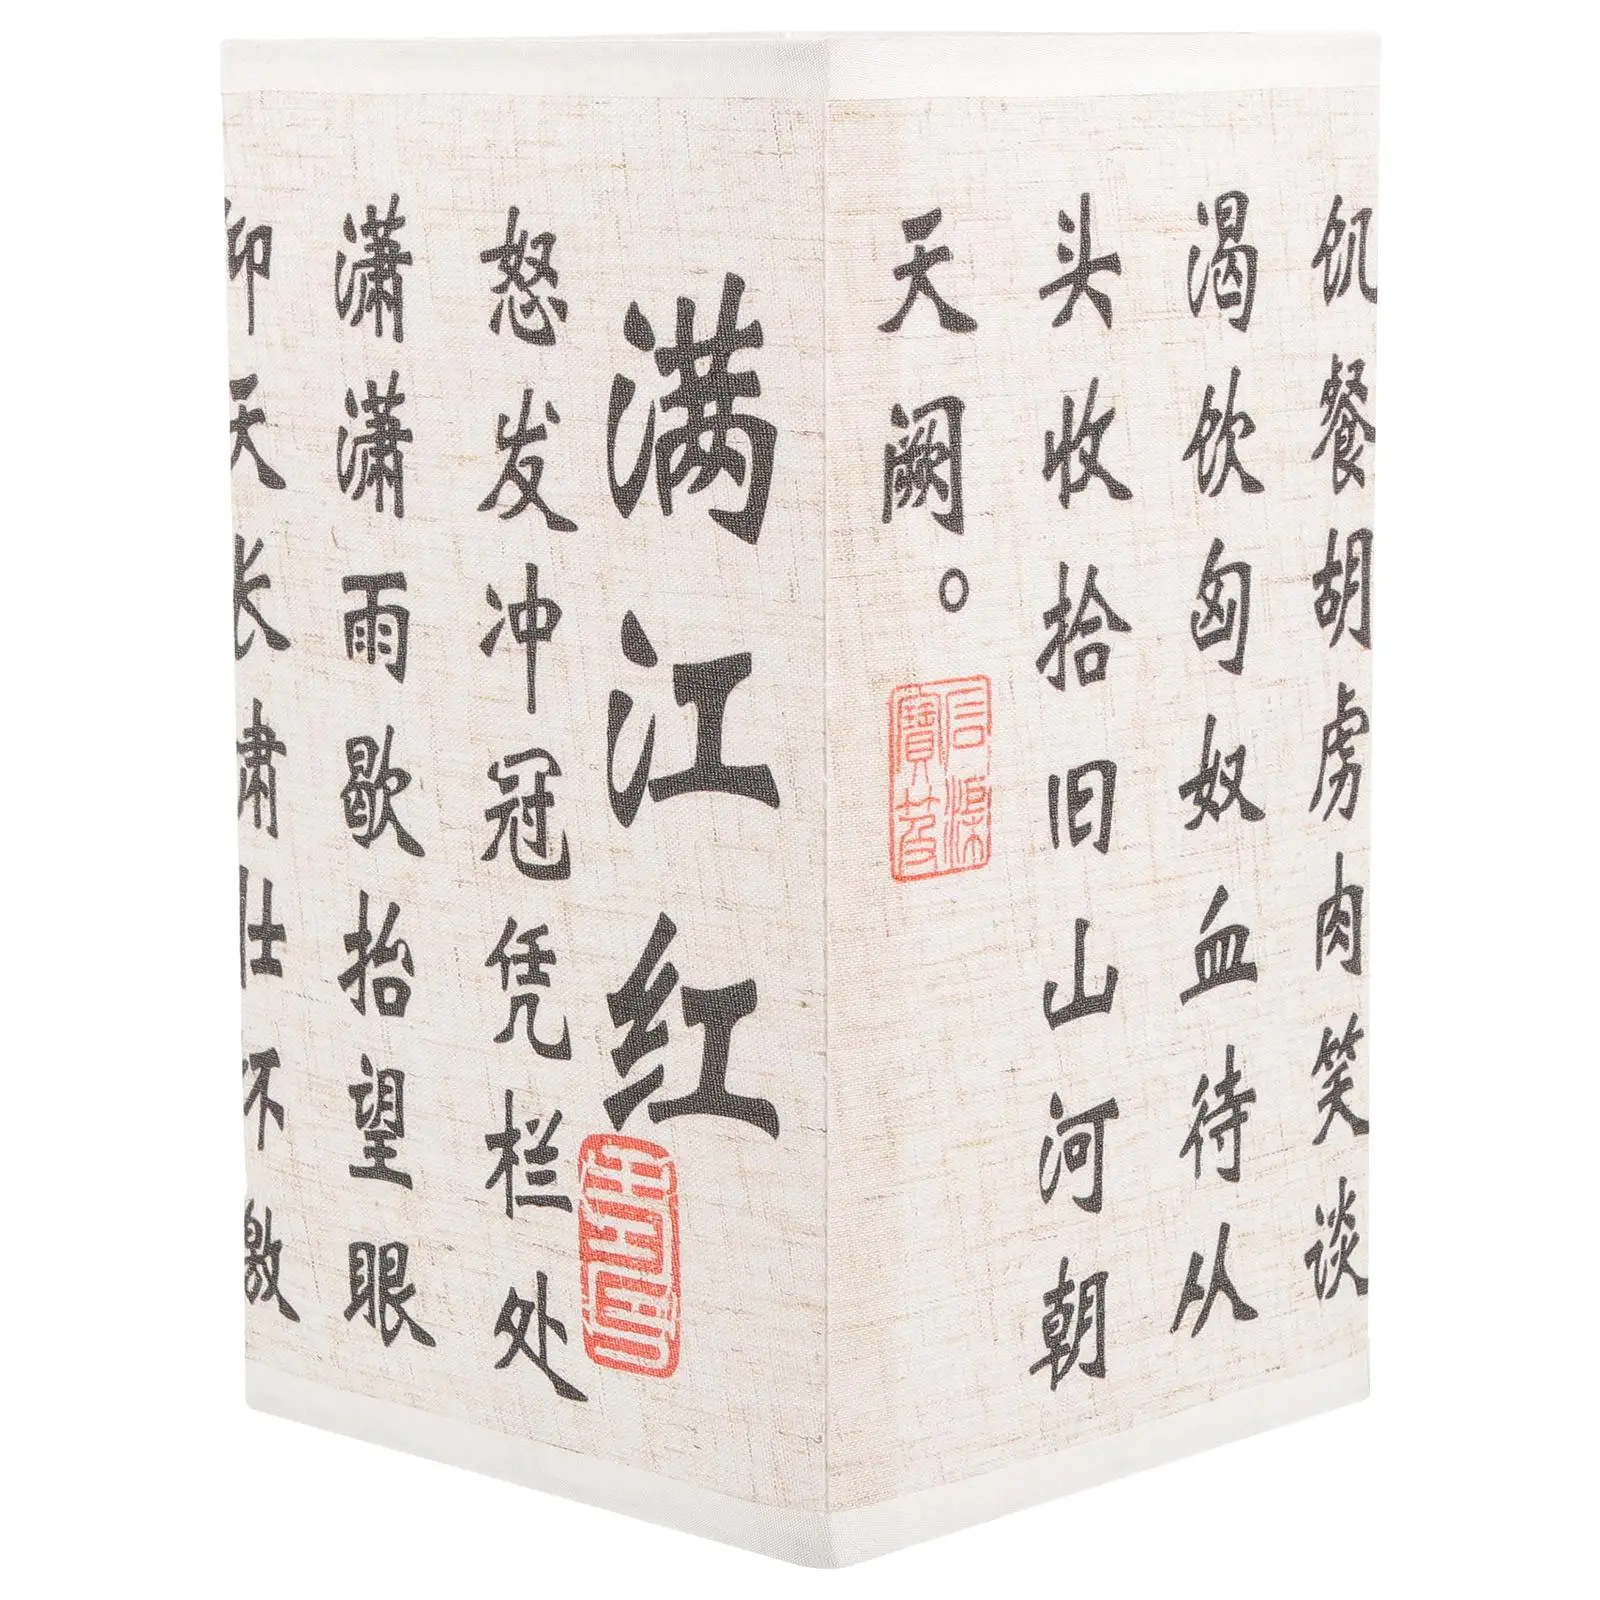 满江红
怒发冲冠凭栏处
潇潇雨歇抬望眼
仰天长啸壮怀激
饥餐胡虏肉笑谈
渴饮匈奴血待从
头收拾旧山河朝
天阙。